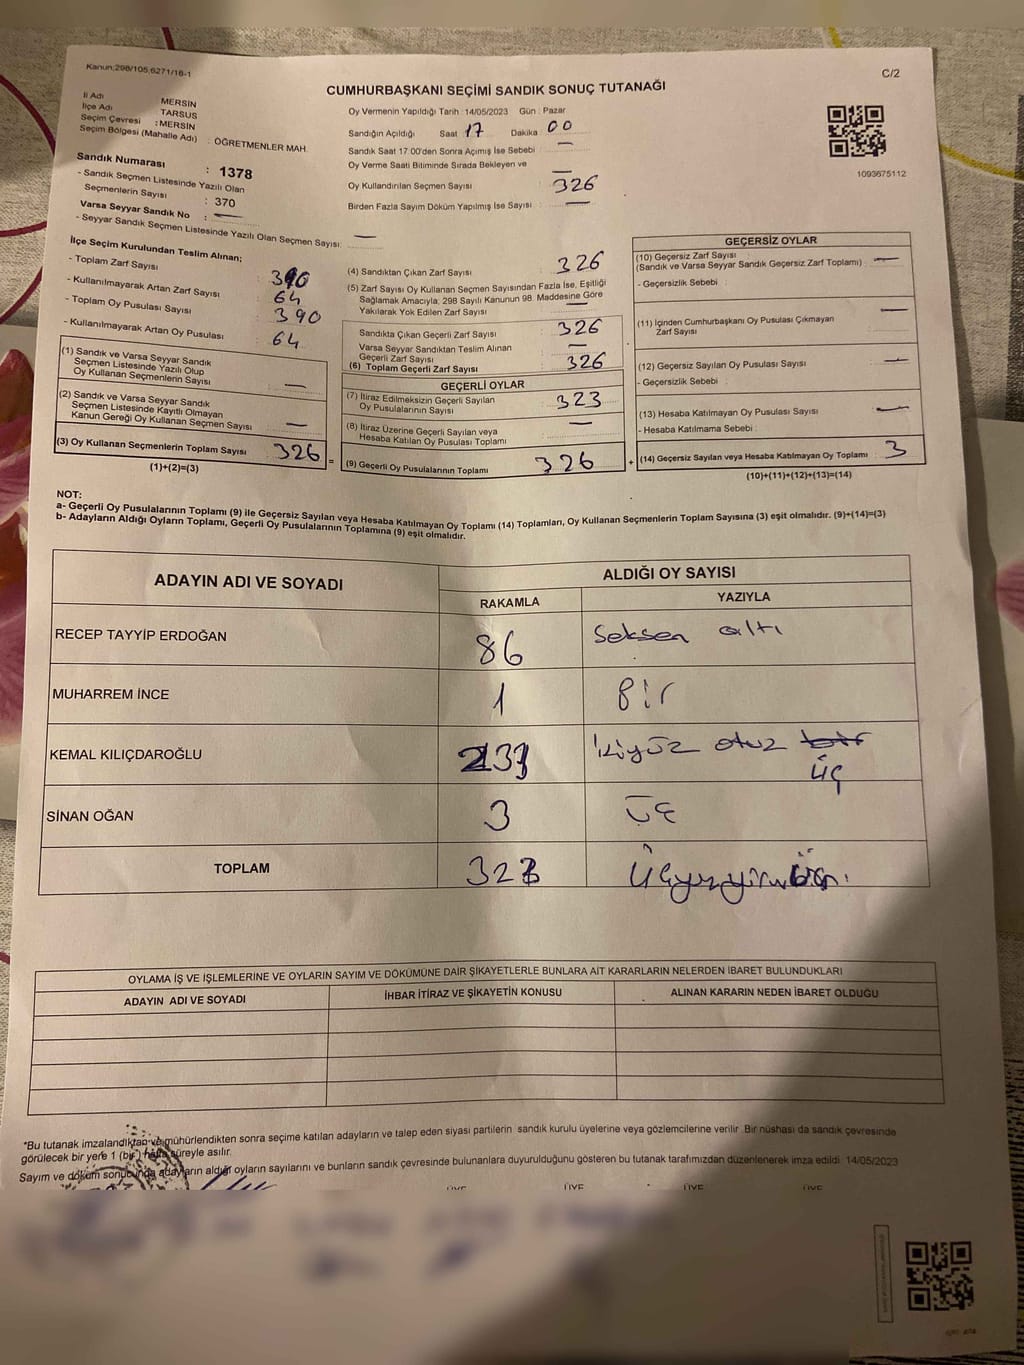 Kanun:298/105,6271/18-1
C/2
CUMHURBAŞKANI SEÇİMİ SANDIK SONUÇ TUTANAĞI
İl Adı MERSİN
İlçe Adı TARSUS
Seçim Çevresi : MERSİN
Seçim Bölgesi (Mahalle Adı) : ÖĞRETMENLER MAH.
Sandık Numarası : 1378
- Sandık Seçmen Listesinde Yazılı Olan
Seçmenlerin Sayısı : 370
Varsa Seyyar Sandık No : —
- Seyyar Sandık Seçmen Listesinde Yazılı Olan Seçmen Sayısı: —
Oy Vermenin Yapıldığı Tarih :14/05/2023 Gün : Pazar
Sandığın Açıldığı Saat 17 Dakika 00
Sandık Saat 17:00'den Sonra Açımış İse Sebebi : —
Oy Verme Saati Bitiminde Sırada Bekleyen ve
Oy Kullandırılan Seçmen Sayısı : 326
Birden Fazla Sayım Döküm Yapılmış İse Sayısı : —
1093675112
İlçe Seçim Kurulundan Teslim Alınan;
- Toplam Zarf Sayısı : 390
- Kullanılmayarak Artan Zarf Sayısı : 64
- Toplam Oy Pusulası Sayısı : 390
- Kullanılmayarak Artan Oy Pusulası : 64
(1) Sandık ve Varsa Seyyar Sandık
Seçmen Listesinde Yazılı Olup
Oy Kullanan Seçmenlerin Sayısı : —
(2) Sandık ve Varsa Seyyar Sandık
Seçmen Listesinde Kayıtlı Olmayan
Kanun Gereği Oy Kullanan Seçmen Sayısı : —
(3) Oy Kullanan Seçmenlerin Toplam Sayısı : 326 =
(1)+(2)=(3)
(4) Sandıktan Çıkan Zarf Sayısı : 326
(5) Zarf Sayısı Oy Kullanan Seçmen Sayısından Fazla İse, Eşitliği
Sağlamak Amacıyla; 298 Sayılı Kanunun 98. Maddesine Göre
Yakılarak Yok Edilen Zarf Sayısı : —
Sandıkta Çıkan Geçerli Zarf Sayısı : 326
Varsa Seyyar Sandıktan Teslim Alınan
Geçerli Zarf Sayısı : —
(6) Toplam Geçerli Zarf Sayısı : 326
GEÇERLİ OYLAR
(7) İtiraz Edilmeksizin Geçerli Sayılan
Oy Pusulalarının Sayısı : 323
(8) İtiraz Üzerine Geçerli Sayılan veya
Hesaba Katılan Oy Pusulası Toplamı : —
(9) Geçerli Oy Pusulalarının Toplamı : 326 +
GEÇERSİZ OYLAR
(10) Geçersiz Zarf Sayısı : —
(Sandık ve Varsa Seyyar Sandık Geçersiz Zarf Toplamı)
- Geçersizlik Sebebi :
(11) İçinden Cumhurbaşkanı Oy Pusulası Çıkmayan
Zarf Sayısı : —
(12) Geçersiz Sayılan Oy Pusulası Sayısı : —
- Geçersizlik Sebebi :
(13) Hesaba Katılmayan Oy Pusulası Sayısı : —
- Hesaba Katılmama Sebebi :
(14) Geçersiz Sayılan veya Hesaba Katılmayan Oy Toplamı : 3
(10)+(11)+(12)+(13)=(14)
NOT:
a- Geçerli Oy Pusulalarının Toplamı (9) ile Geçersiz Sayılan veya Hesaba Katılmayan Oy Toplamı (14) Toplamları, Oy Kullanan Seçmenlerin Toplam Sayısına (3) eşit olmalıdır. (9)+(14)=(3)
b- Adayların Aldığı Oyların Toplamı, Geçerli Oy Pusulalarının Toplamına (9) eşit olmalıdır.
ADAYIN ADI VE SOYADI ALDIĞI OY SAYISI
RAKAMLA YAZIYLA
RECEP TAYYİP ERDOĞAN 86 Seksen altı
MUHARREM İNCE 1 Bir
KEMAL KILIÇDAROĞLU 233 ikiyüz otuz bir üç
SİNAN OĞAN 3 Üç
TOPLAM 323
OYLAMA İŞ VE İŞLEMLERİNE VE OYLARIN SAYIM VE DÖKÜMÜNE DAİR ŞİKAYETLERLE BUNLARA AİT KARARLARIN NELERDEN İBARET BULUNDUKLARI
ADAYIN ADI VE SOYADI İHBAR İTİRAZ VE ŞİKAYETİN KONUSU ALINAN KARARIN NEDEN İBARET OLDUĞU
*Bu tutanak imzalandıktan ve mühürlendikten sonra seçime katılan adayların ve talep eden siyasi partilerin sandık kurulu üyelerine veya gözlemcilerine verilir. Bir nüshası da sandık çevresinde
görülecek bir yere 1 (bir) hafta süreyle asılır.
Sayım ve döküm sonucunda adayların aldığı oyların sayılarını ve bunların sandık çevresinde bulunanlara duyurulduğunu gösteren bu tutanak tarafımızdan düzenlenerek imza edildi. 14/05/2023
ÜYE ÜYE ÜYE ÜYE